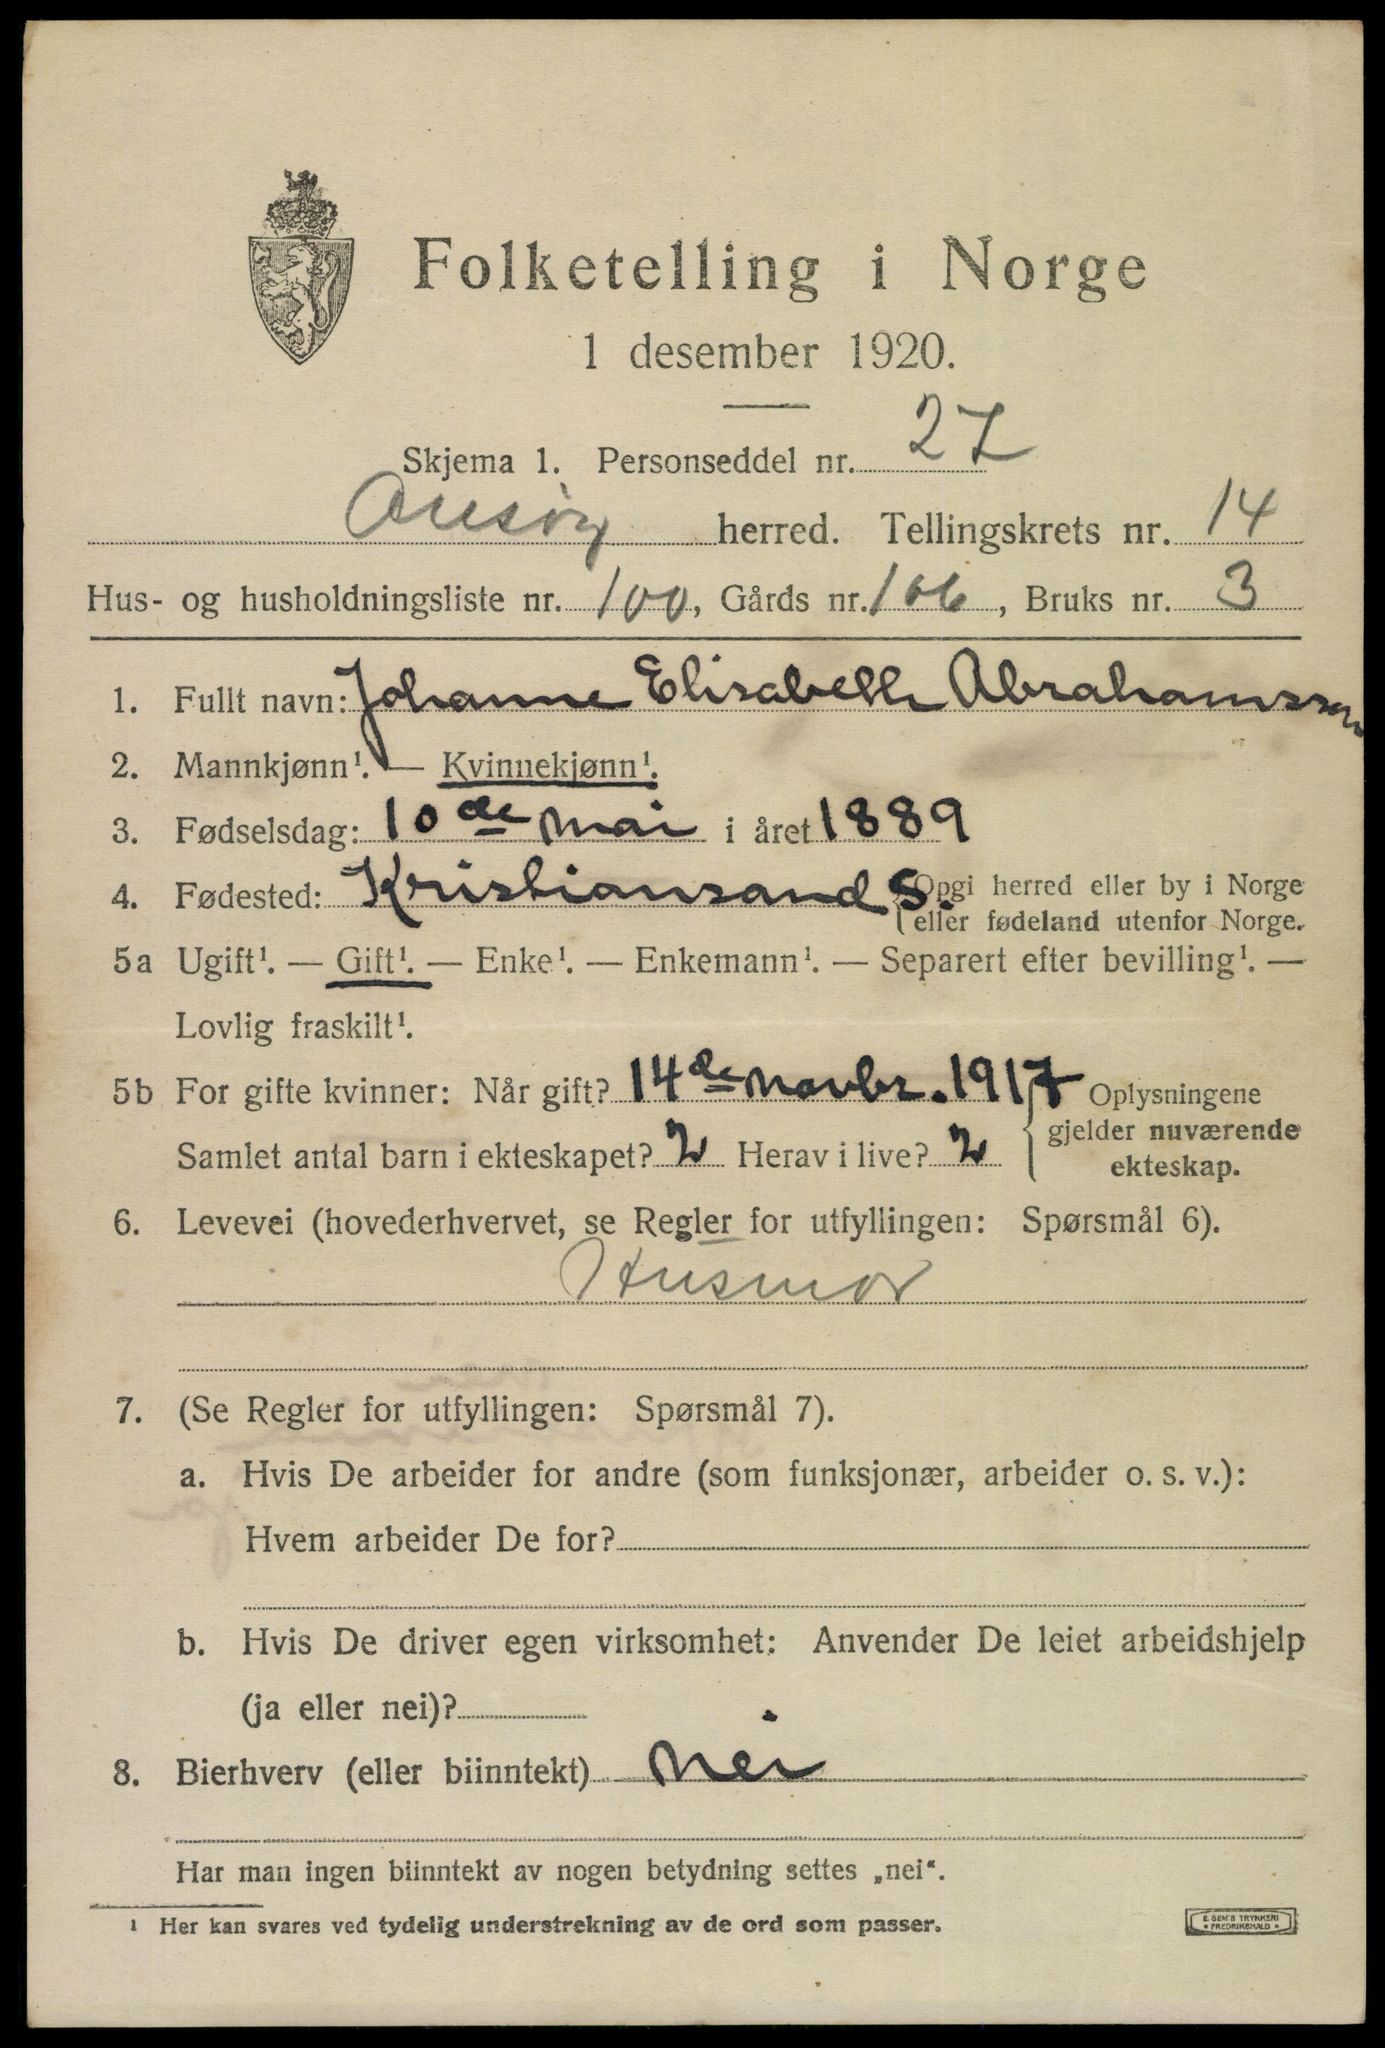 Folketelling i Norge
1 desember 1920.
Skjema 1. Personseddel nr. 27
herred. Tellingskrets nr. 14
Hus- og husholdningsliste nr. 100, Gårds nr. 106, Bruks nr. 3
1. Fullt navn: Johanne Elisabeth Abrahamssen
2. Mannkjønn¹. — Kvinnekjønn¹.
3. Fødselsdag: 10de mai i året 1889
4. Fødested: Kristiansand S. Opgi herred eller by i Norge
eller fødeland utenfor Norge.
5a Ugift¹. — Gift¹. — Enke¹. — Enkemann¹. — Separert efter bevilling¹. —
Lovlig fraskilt¹.
5b For gifte kvinner: Når gift? 14de novbr. 1917 Oplysningene
gjelder nuværende
Samlet antal barn i ekteskapet? 2 Herav i live? 2 ekteskap.
6. Levevei (hovederhvervet, se Regler for utfyllingen: Spørsmål 6).
Husmor
7. (Se Regler for utfyllingen: Spørsmål 7).
a. Hvis De arbeider for andre (som funksjonær, arbeider o. s. v.):
Hvem arbeider De for?
b. Hvis De driver egen virksomhet: Anvender De leiet arbeidshjelp
(ja eller nei)?
8. Bierhverv (eller biinntekt) Nei
Har man ingen biinntekt av nogen betydning settes „nei“.
¹ Her kan svares ved tydelig understrekning av de ord som passer.
E. SEM'S TRYKKERI
• FREDRIKSHALD •